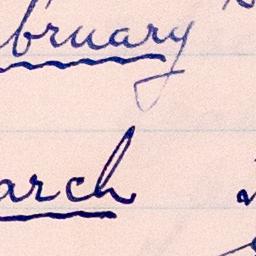 bruary
arch